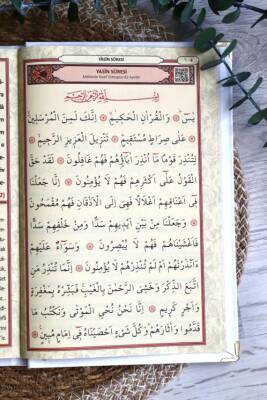 YÂSÎN SÛRESİ
YASİN SÛRESİ
بِسْمِ اللّٰهِ الرَّحْمٰنِ الرَّحِيمِ
يٰسٓ ۞ وَالْقُرْاٰنِ الْحَكِيمِ ۞ اِنَّكَ لَمِنَ الْمُرْسَلِينَ
عَلٰى صِرَاطٍ مُسْتَقِيمٍ ۞ تَنْزِيلَ الْعَزِيزِ الرَّحِيمِ
لِتُنْذِرَ قَوْمًا مَٓا اُنْذِرَ اٰبَٓاؤُهُمْ فَهُمْ غَافِلُونَ ۞ لَقَدْ حَقَّ
الْقَوْلُ عَلٰٓى اَكْثَرِهِمْ فَهُمْ لَا يُؤْمِنُونَ ۞ اِنَّا جَعَلْنَا
فِٓى اَعْنَاقِهِمْ اَغْلَالًا فَهِىَ اِلَى الْاَذْقَانِ فَهُمْ مُقْمَحُونَ
۞ وَجَعَلْنَا مِنْ بَيْنِ اَيْدِيهِمْ سَدًّا وَمِنْ خَلْفِهِمْ سَدًّا
فَاَغْشَيْنَاهُمْ فَهُمْ لَا يُبْصِرُونَ ۞ وَسَوَٓاءٌ عَلَيْهِمْ
ءَاَنْذَرْتَهُمْ اَمْ لَمْ تُنْذِرْهُمْ لَا يُؤْمِنُونَ ۞ اِنَّمَا تُنْذِرُ مَنِ
اتَّبَعَ الذِّكْرَ وَخَشِىَ الرَّحْمٰنَ بِالْغَيْبِ فَبَشِّرْهُ بِمَغْفِرَةٍ
وَاَجْرٍ كَرِيمٍ ۞ اِنَّا نَحْنُ نُحْىِ الْمَوْتٰى وَنَكْتُبُ مَا
قَدَّمُوا وَاٰثَارَهُمْ وَكُلَّ شَىْءٍ اَحْصَيْنَاهُ فِٓى اِمَامٍ مُبِينٍ ۞